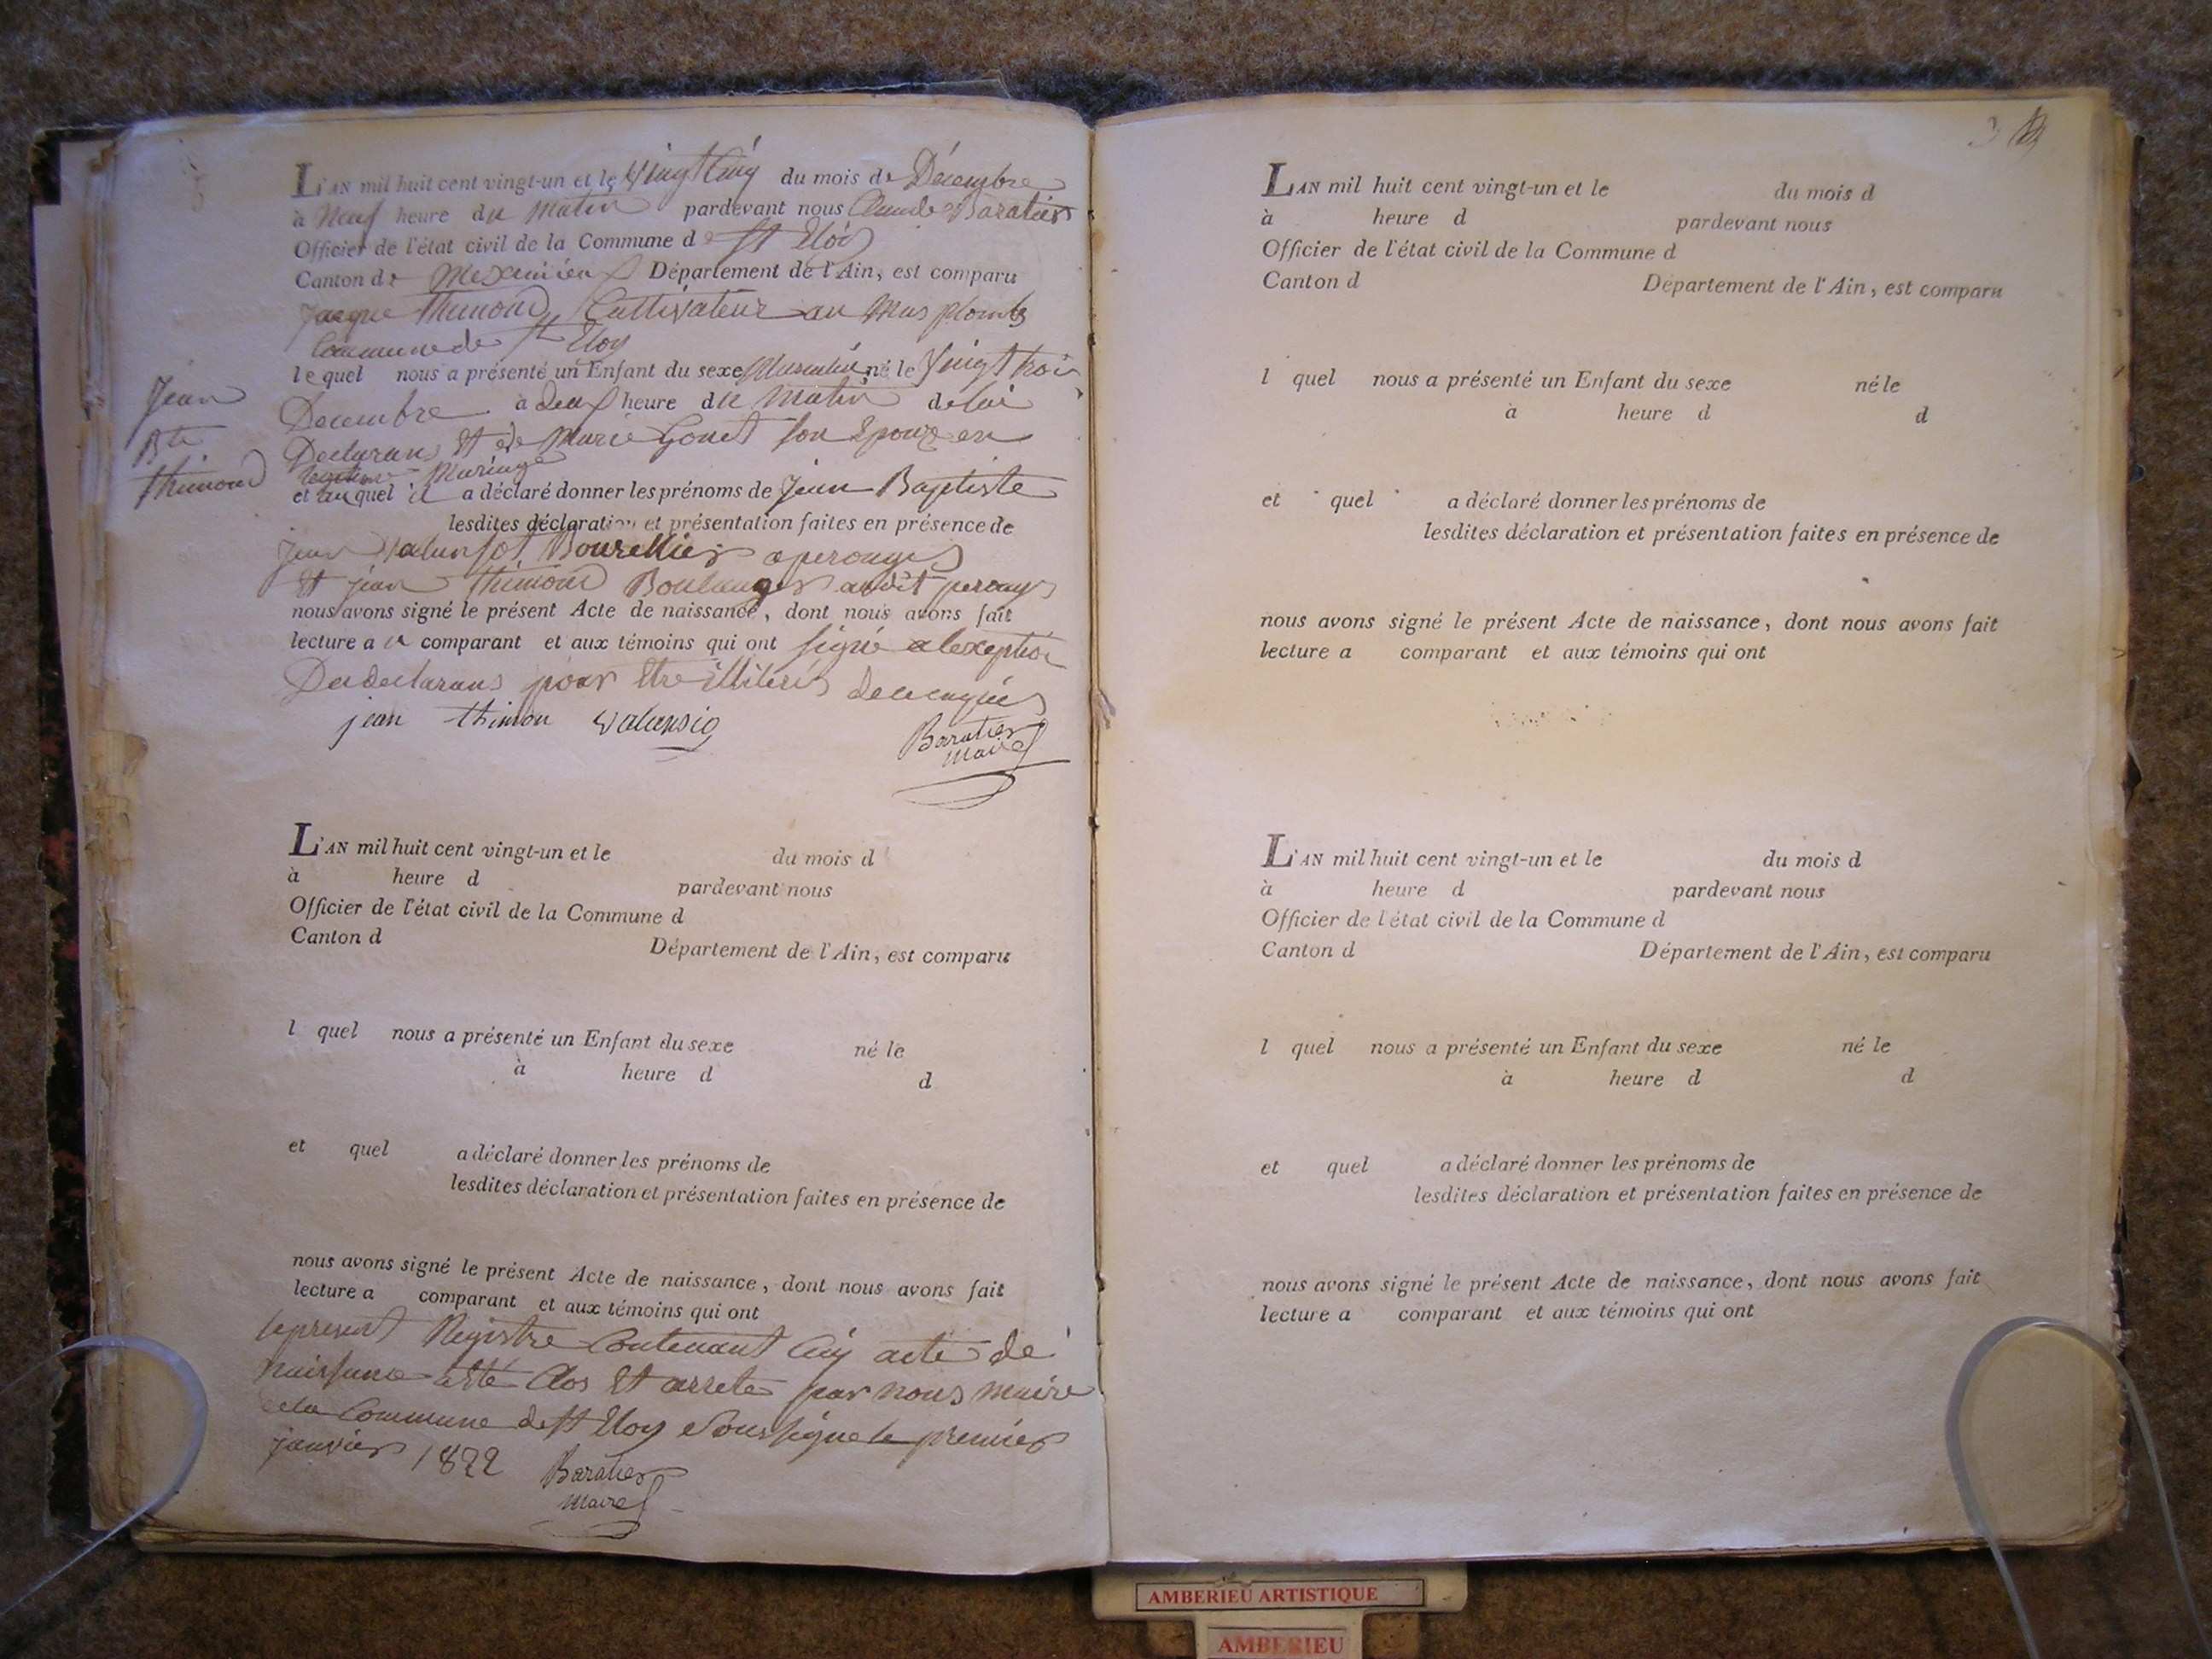 L'AN mil huit cent vingt-un et le Vingt Cinq du mois de Décembre
à Neuf heure du matin pardevant nous Claude Baratier
Officier de l'état civil de la Commune de St Eloy
Canton de Meximieux Département de l'Ain, est comparu
Jacque thimond Cultivateur au Mas plomb
Commune de St Eloy
lequel nous a présenté un Enfant du sexe Masculin né le Vingt trois
Decembre à deux heure du matin de lui
Declarans Et de Marie Gonet son Epouze en
legitime Mariage
et au quel il a déclaré donner les prénoms de Jean Baptiste
lesdites déclaration et présentation faites en présence de
Jean Bourellier a perouges
Et jean thimond Boulanger audit perouges
nous avons signé le présent Acte de naissance, dont nous avons fait
lecture a u comparant et aux témoins qui ont signé a lexception
Du declarans pour Etre illiteré de ce enquis
jean thimon valansio
Baratier
Maire
Jean
Bte
thimond
L'AN mil huit cent vingt-un et le du mois d
à heure d pardevant nous
Officier de l'état civil de la Commune d
Canton d Département de l'Ain, est comparu
l quel nous a présenté un Enfant du sexe né le
à heure d d
et quel a déclaré donner les prénoms de
lesdites déclaration et présentation faites en présence de
nous avons signé le présent Acte de naissance, dont nous avons fait
lecture a comparant et aux témoins qui ont
le present Registre Contenant Cinq acte de
Naissance a Eté Clos Et arreté par nous maire
de la Commune de St Eloy Soussigne le premier
janvier 1822
Baratier
Maire
LAN mil huit cent vingt-un et le du mois d
à heure d pardevant nous
Officier de l'état civil de la Commune d
Canton d Département de l'Ain, est comparu
l quel nous a présenté un Enfant du sexe né le
à heure d d
et quel a déclaré donner les prénoms de
lesdites déclaration et présentation faites en présence de
nous avons signé le présent Acte de naissance, dont nous avons fait
lecture a comparant et aux témoins qui ont
L'AN mil huit cent vingt-un et le du mois d
à heure d pardevant nous
Officier de l'état civil de la Commune d
Canton d Département de l'Ain, est comparu
l quel nous a présenté un Enfant du sexe né le
à heure d d
et quel a déclaré donner les prénoms de
lesdites déclaration et présentation faites en présence de
nous avons signé le présent Acte de naissance, dont nous avons fait
lecture a comparant et aux témoins qui ont
AMBERIEU ARTISTIQUE
AMBERIEU